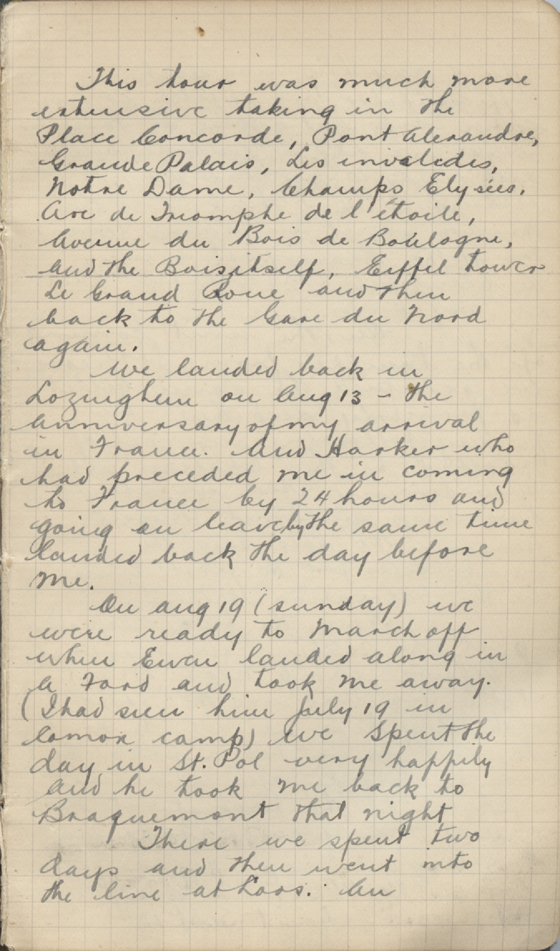 This tour was much more
extensive taking in the
Place Concorde, Pont Alexandre,
Grande Palais, Les invaledes,
Notre Dame, Champs Elysées,
Arc de Triomphe de l'étoile,
Avenue du Bois de Boulogne,
and the Bois itself, Eiffel tower
Le Grand Roue and then
back to the Gare du Nord
again.
We landed back in
Lozinghem on Aug 13 - the
anniversary of my arrival
in France. And Harker who
had preceded me in coming
to France by 24 hours and
going on leave by the same time
landed back the day before
me.
On Aug 19 (Sunday) we
were ready to March off
when Ewen landed along in
a Ford and took me away.
(I had seen him July 19 in
camp) We spent the
day in St. Pol very happily
and he took me back to
Braquemont that night
There we spent two
days and then went into
the line at Loos. An